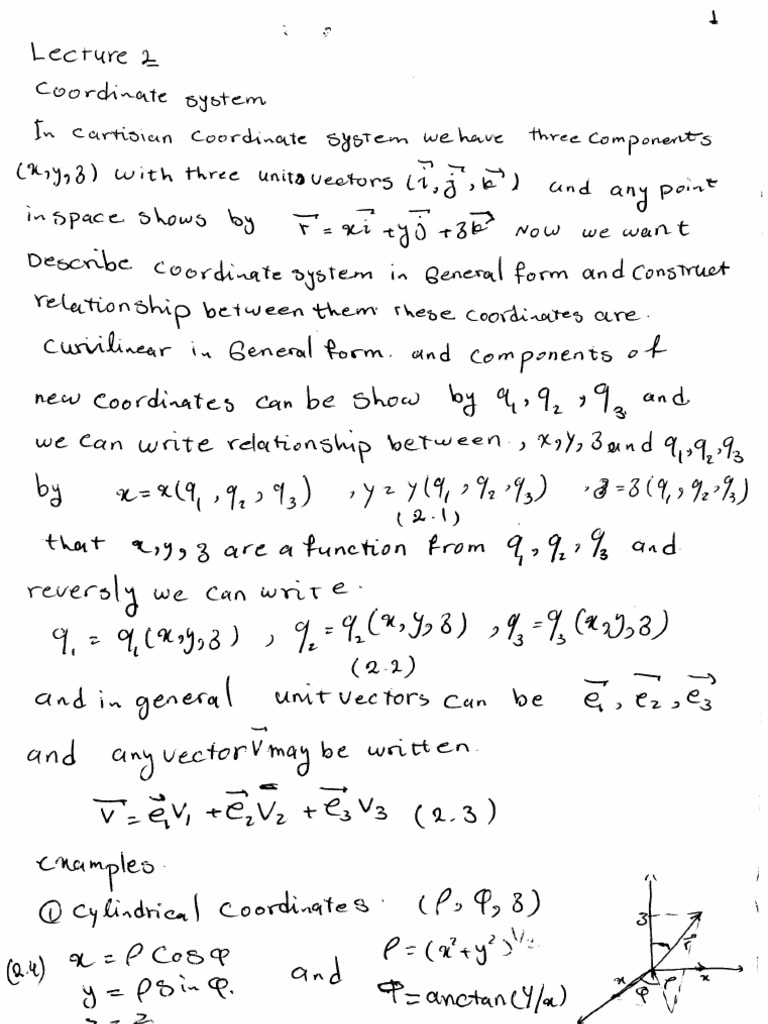 1
Lecture 2
Coordinate system
In cartisian coordinate system we have three components
(x,y,z) with three units vectors (i⃗, j⃗, k⃗) and any point
in space shows by r⃗ = xi⃗ + yj⃗ + zk⃗ Now we want
Describe coordinate system in General form and construct
relationship between them These coordinates are.
curvilinear in General form. and components of
new coordinates can be show by q₁, q₂, q₃ and
we can write relationship between, x,y,z and q₁,q₂,q₃
by x = x(q₁, q₂, q₃), y = y(q₁, q₂, q₃), z = z(q₁, q₂, q₃)
(2.1)
that x,y,z are a function from q₁, q₂, q₃ and
reversly we can write.
q₁ = q₁(x,y,z), q₂ = q₂(x,y,z), q₃ = q₃(x,y,z)
(2.2)
and in general unit vectors can be e⃗₁, e⃗₂, e⃗₃
and any vector V⃗ may be written.
V⃗ = e⃗₁V₁ + e⃗₂V₂ + e⃗₃V₃ (2.3)
examples.
① cylindrical coordinates. (ρ, φ, z)
(2.4) x = ρ Cosφ and ρ = (x² + y²)^1/2
y = ρ Sinφ. φ = arctan(y/x)
z = z
z
r⃗
x
φ
ρ
x